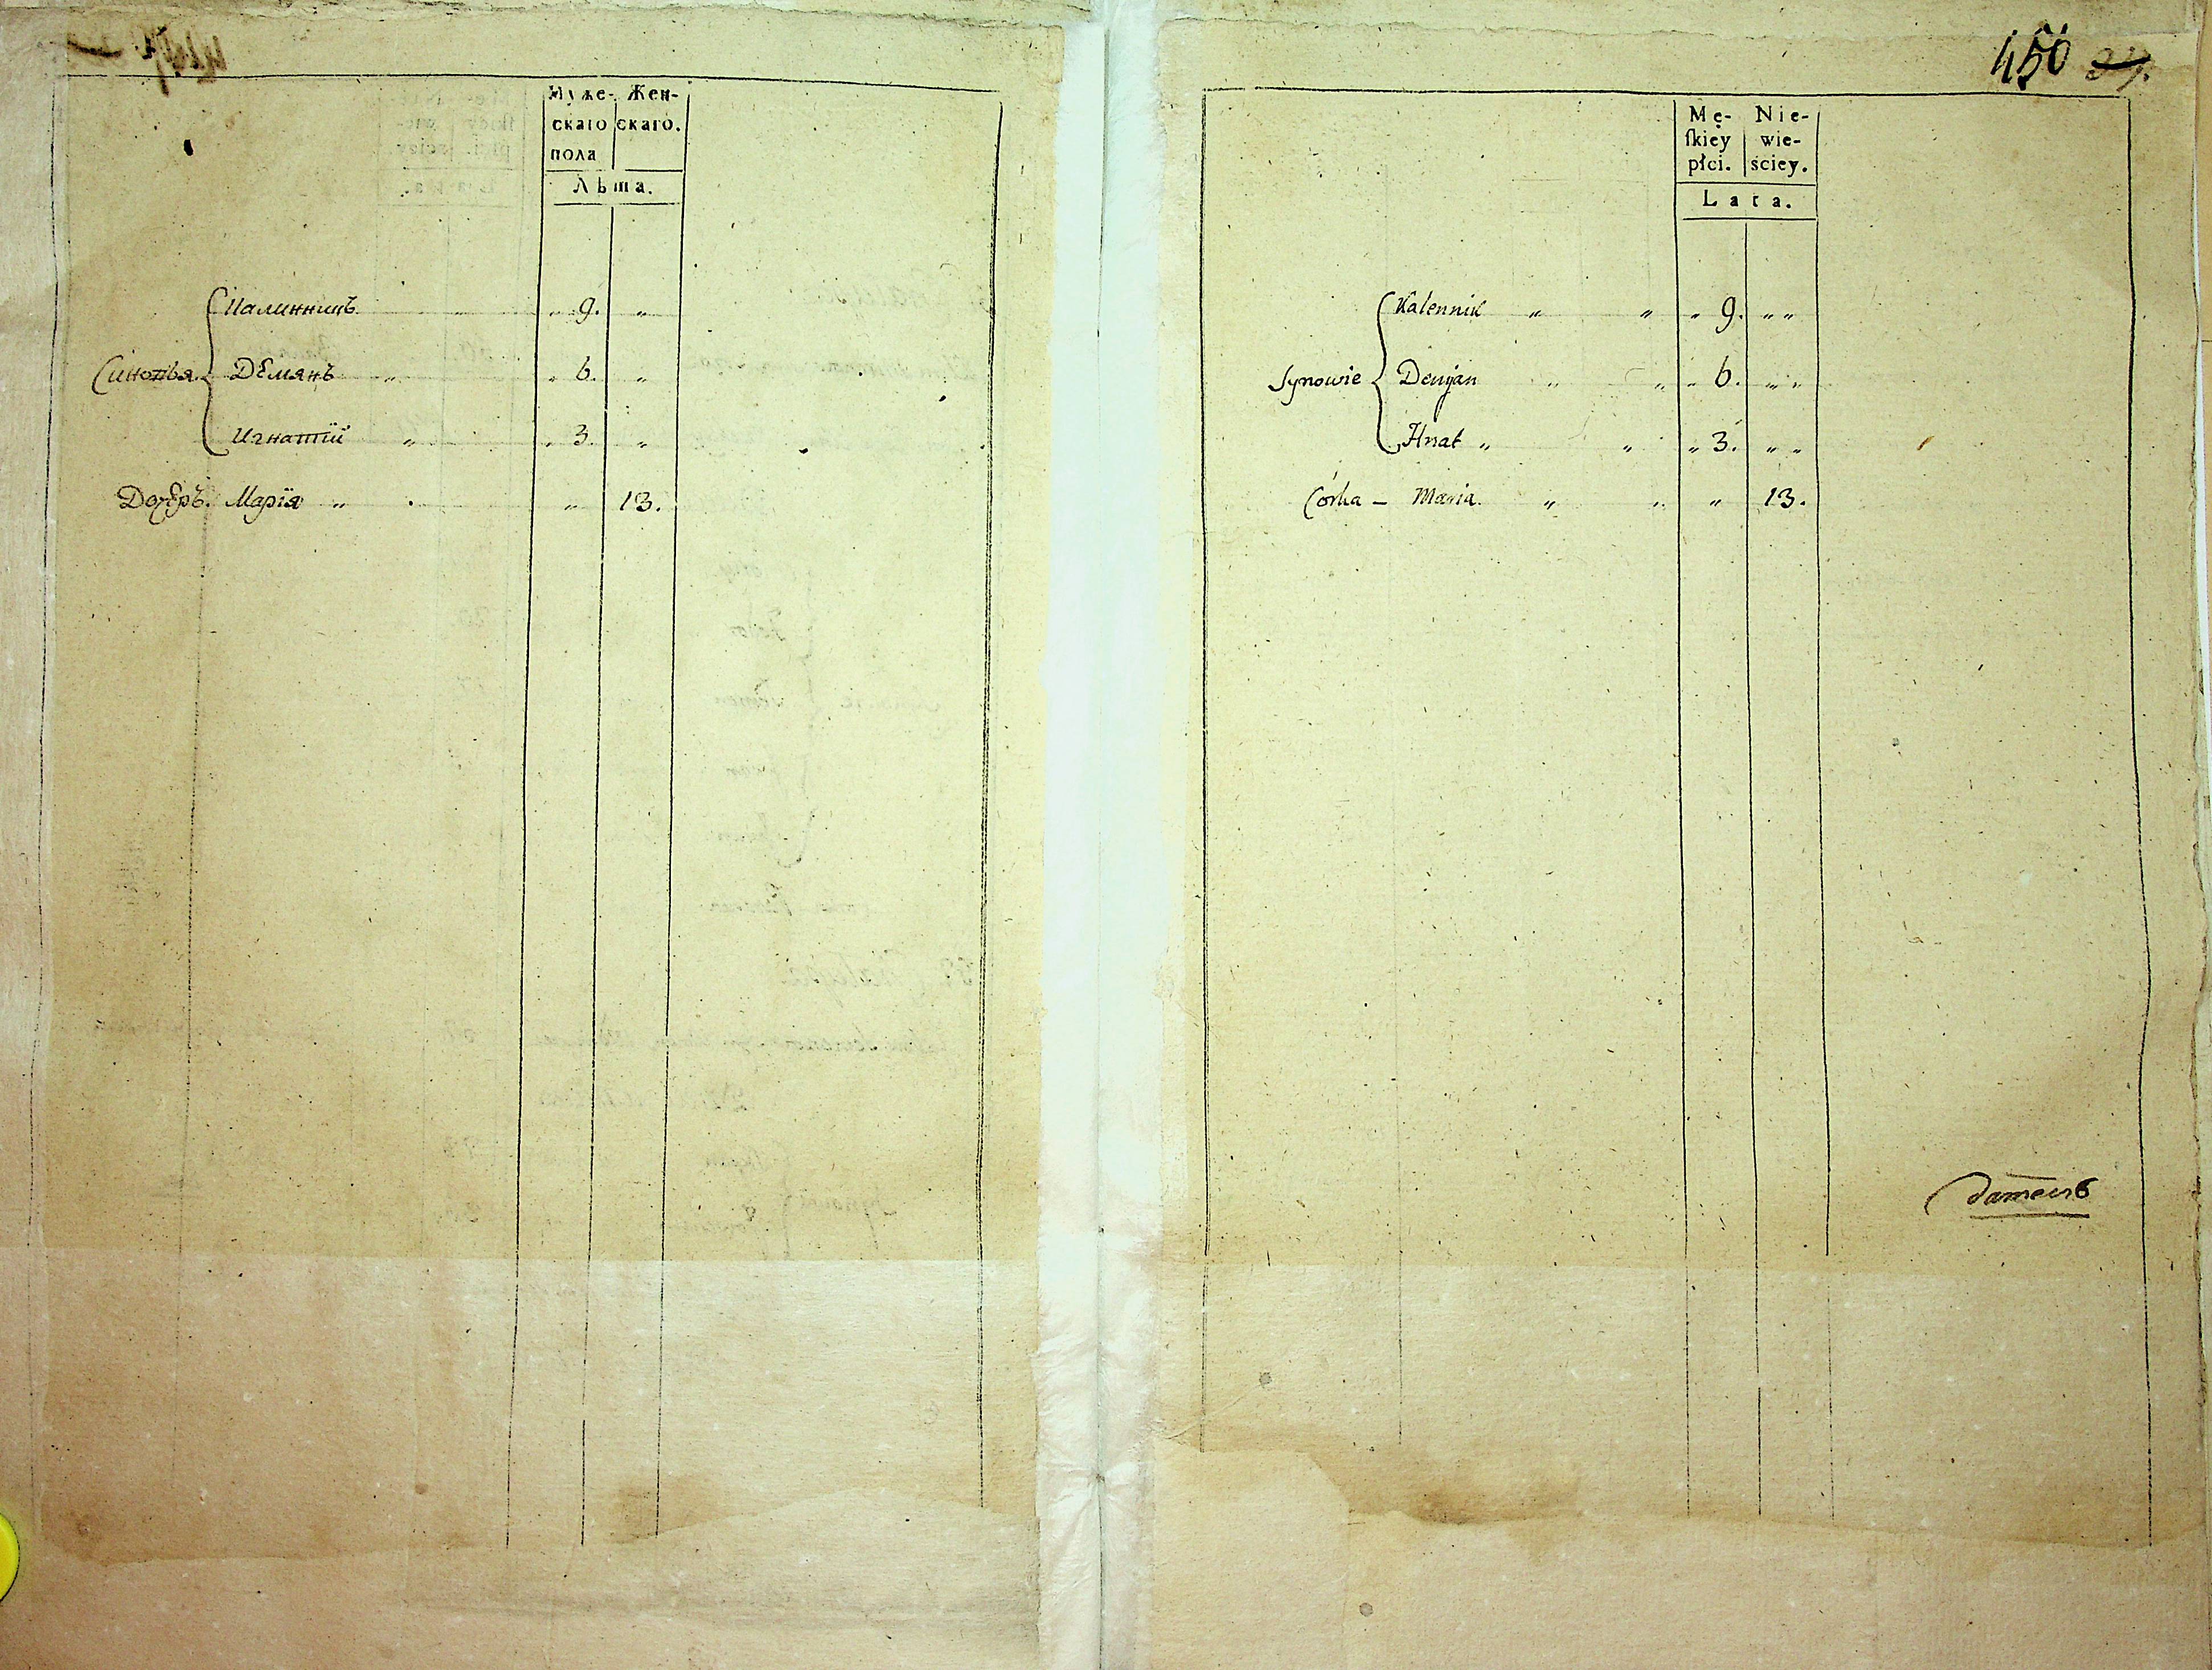 Муже- Жен-
скаго скаго.
пола
Лѣта.
Калинникъ " " 9. "
Синовья Демянъ " " 6. "
Игнатій " " 3. "
Дочеръ. Марія " " 13.
450 37.
Mę- Nie-
ſkiey wie-
płci. ściey.
Lata.
Kalennik " " " 9. " "
Synowie Demjan " " " 6. " "
Hnat " " " 3. " "
Córka – Maria. " " " 13.